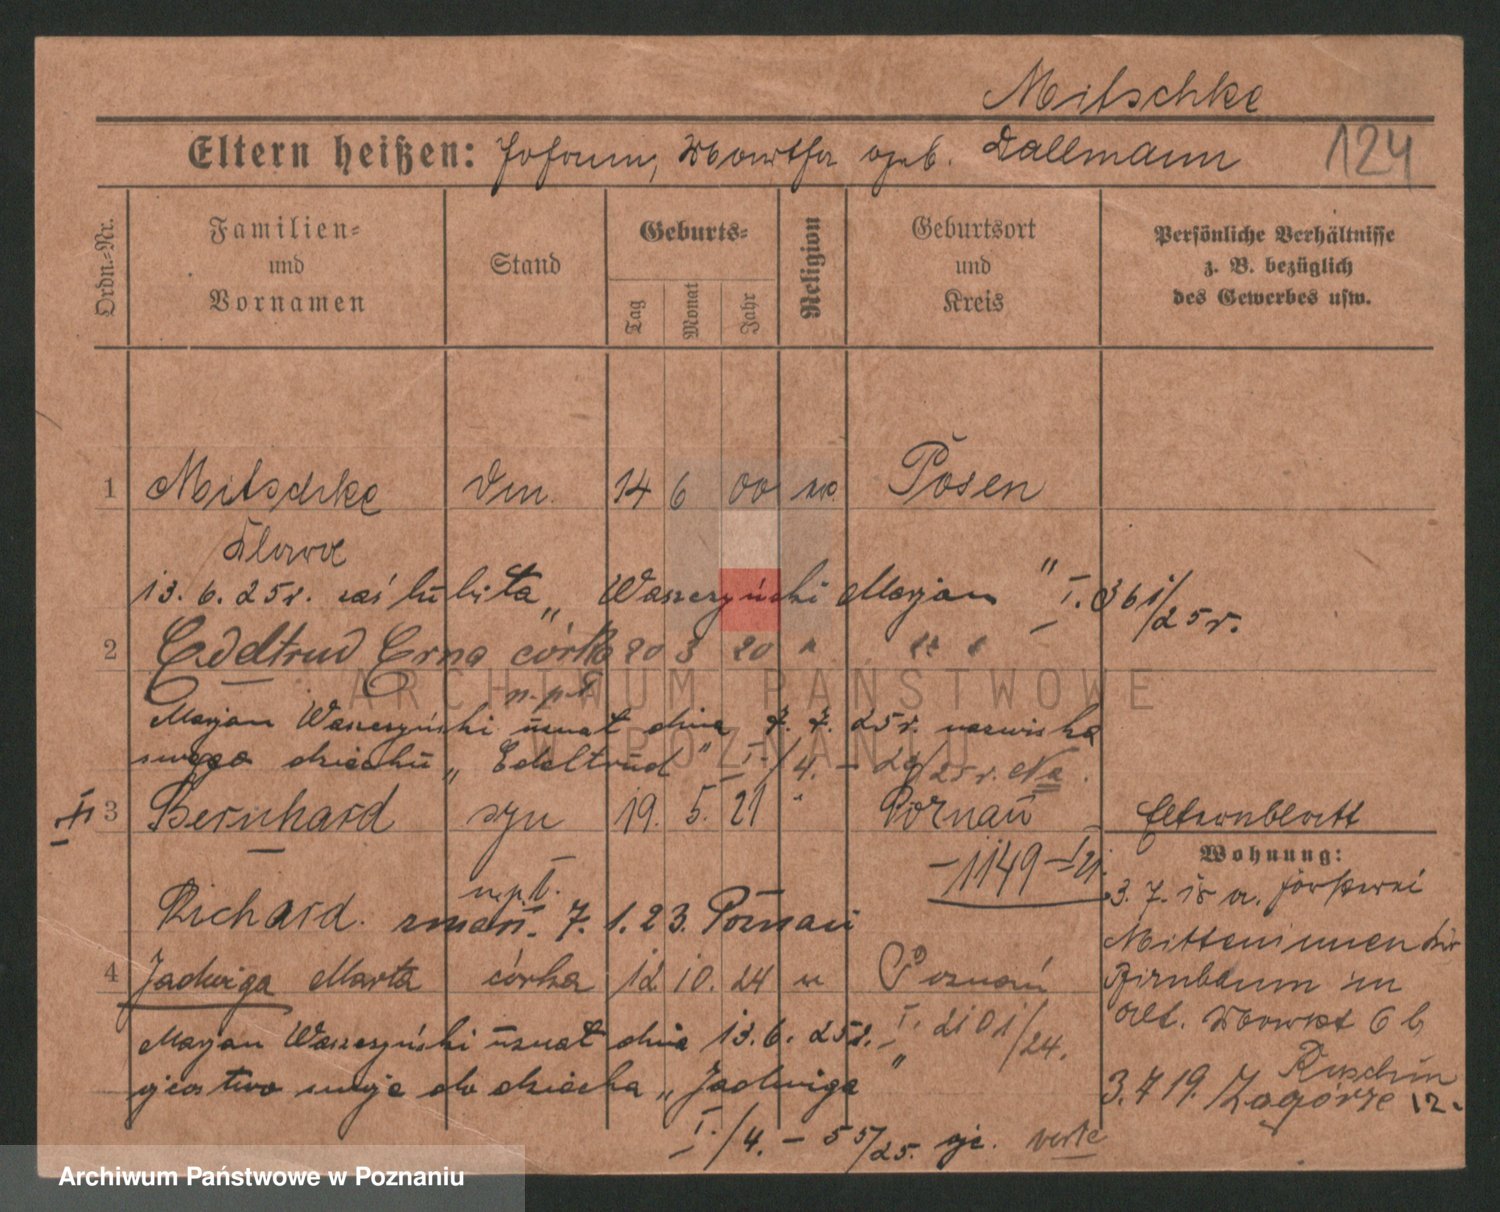 Mitschke
Eltern heißen: Johann, Martha geb. Dallmann
124
Ordn.-Nr.
Familien- und Vornamen
Stand
Geburts-
Tag
Monat
Jahr
Religion
Geburtsort und Kreis
Persönliche Verhältnisse z. B. bezüglich des Gewerbes usw.
1 Mitschke 14 6 00 Posen
Klara
13. 6. 25 r. zaślubiła „Waszczyński Marjan" I. 361/25 r.
2 Edeltrud Erna córka 20 3 20 " " "
n. p. ł.
Marjan Waszczyński uznał dnia 7. 7. 25 r. nazwiska
swego dziecku „Edeltrud" I./4. - 29/25 r.
II 3 Bernhard syn 19. 5. 21 " Poznań
- 1149 - I 21.
Elternblatt
Wohnung:
n. p. ł.
Richard. zmarł. 7. 1. 23. Poznań
3. 7. 18 a.
4 Jadwiga Marta córka 12 10. 24 " Poznań
I. 2101/24.
Birnbaum
Alt. Markt 6 b
Marjan Waszczyński uznał dnia 13. 6. 25 r.
ojcostwo swoje do dziecka „Jadwiga"
3. 7 19. Zagórze 12.
I./4. - 55/25. verte
ARCHIWUM PAŃSTWOWE
W POZNANIU
Archiwum Państwowe w Poznaniu